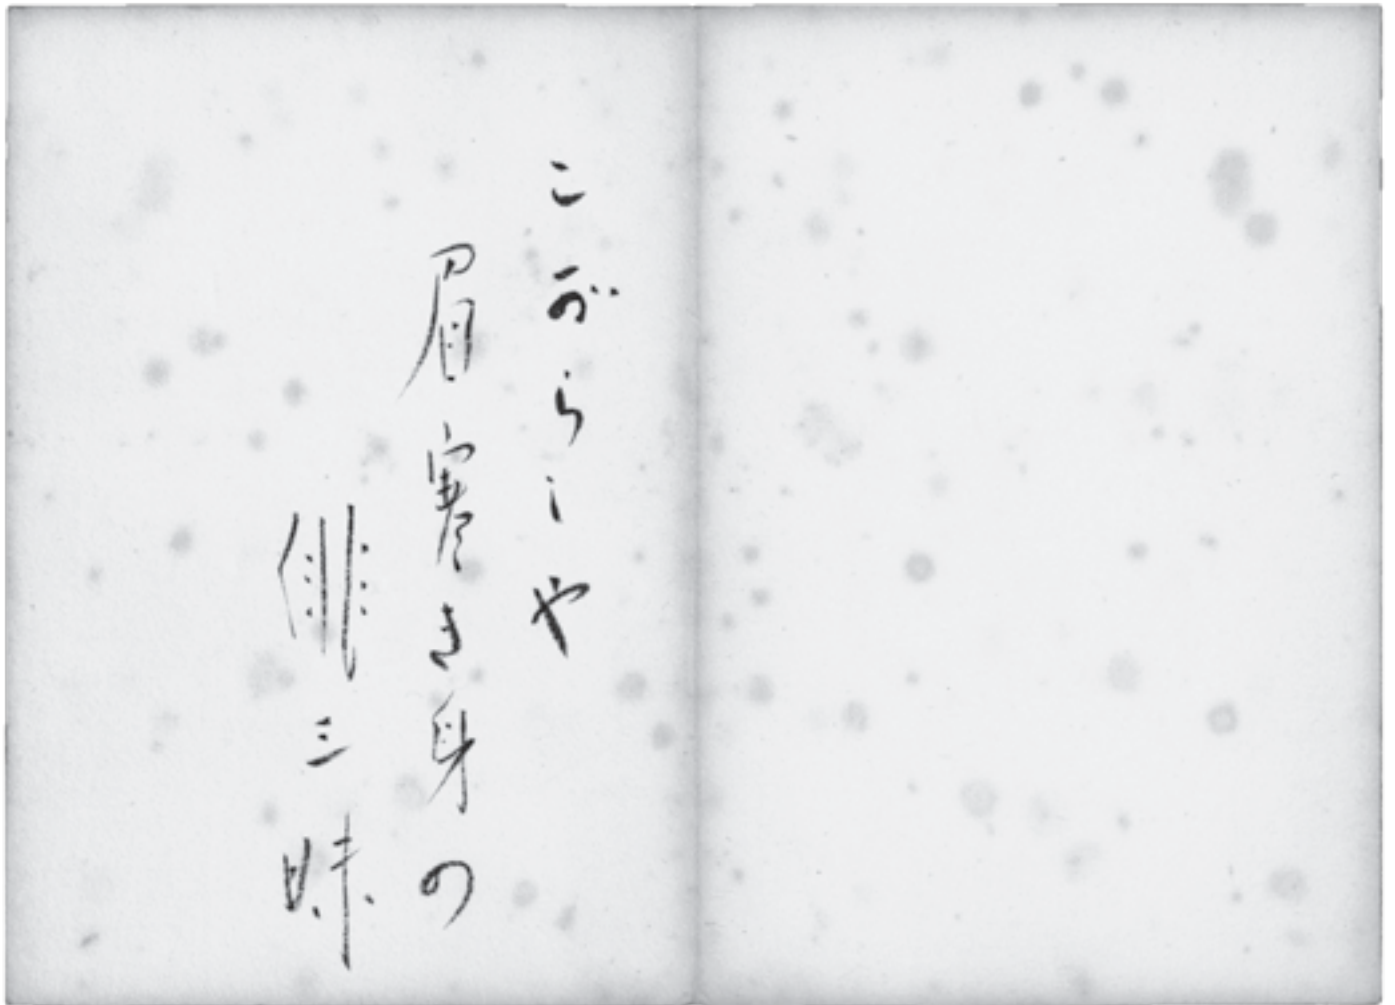 こがらしや
眉寒き身の
俳三昧